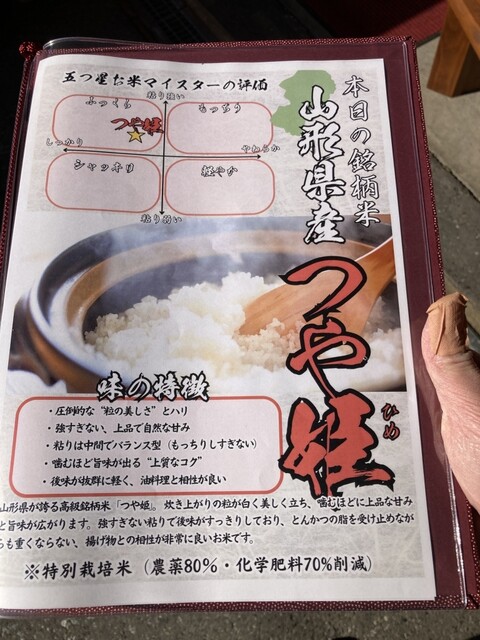 本日の銘柄米
山形県産
つや姫
ひめ
五つ星お米マイスターの評価
粘り強い
ふっくら
もっちり
つや姫
しっかり
やわらか
シャッキリ
軽やか
粘り弱い
味の特徴
・圧倒的な“粒の美しさ”とハリ
・強すぎない、上品で自然な甘み
・粘りは中間でバランス型（もっちりしすぎない）
・噛むほど旨味が出る“上質なコク”
・後味が抜群に軽く、油料理と相性が良い
山形県が誇る高級銘柄米「つや姫」。炊き上がりの粒が白く美しく立ち、噛むほどに上品な甘み
と旨味が広がります。強すぎない粘りで後味がすっきりしており、とんかつの脂を受け止めなが
らも重くならない、揚げ物との相性が非常に良いお米です。
※特別栽培米（農薬80%・化学肥料70%削減）